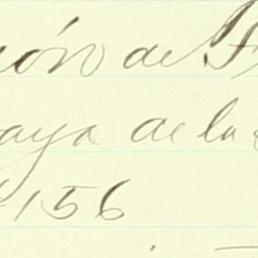 ión de F
aya de la
156